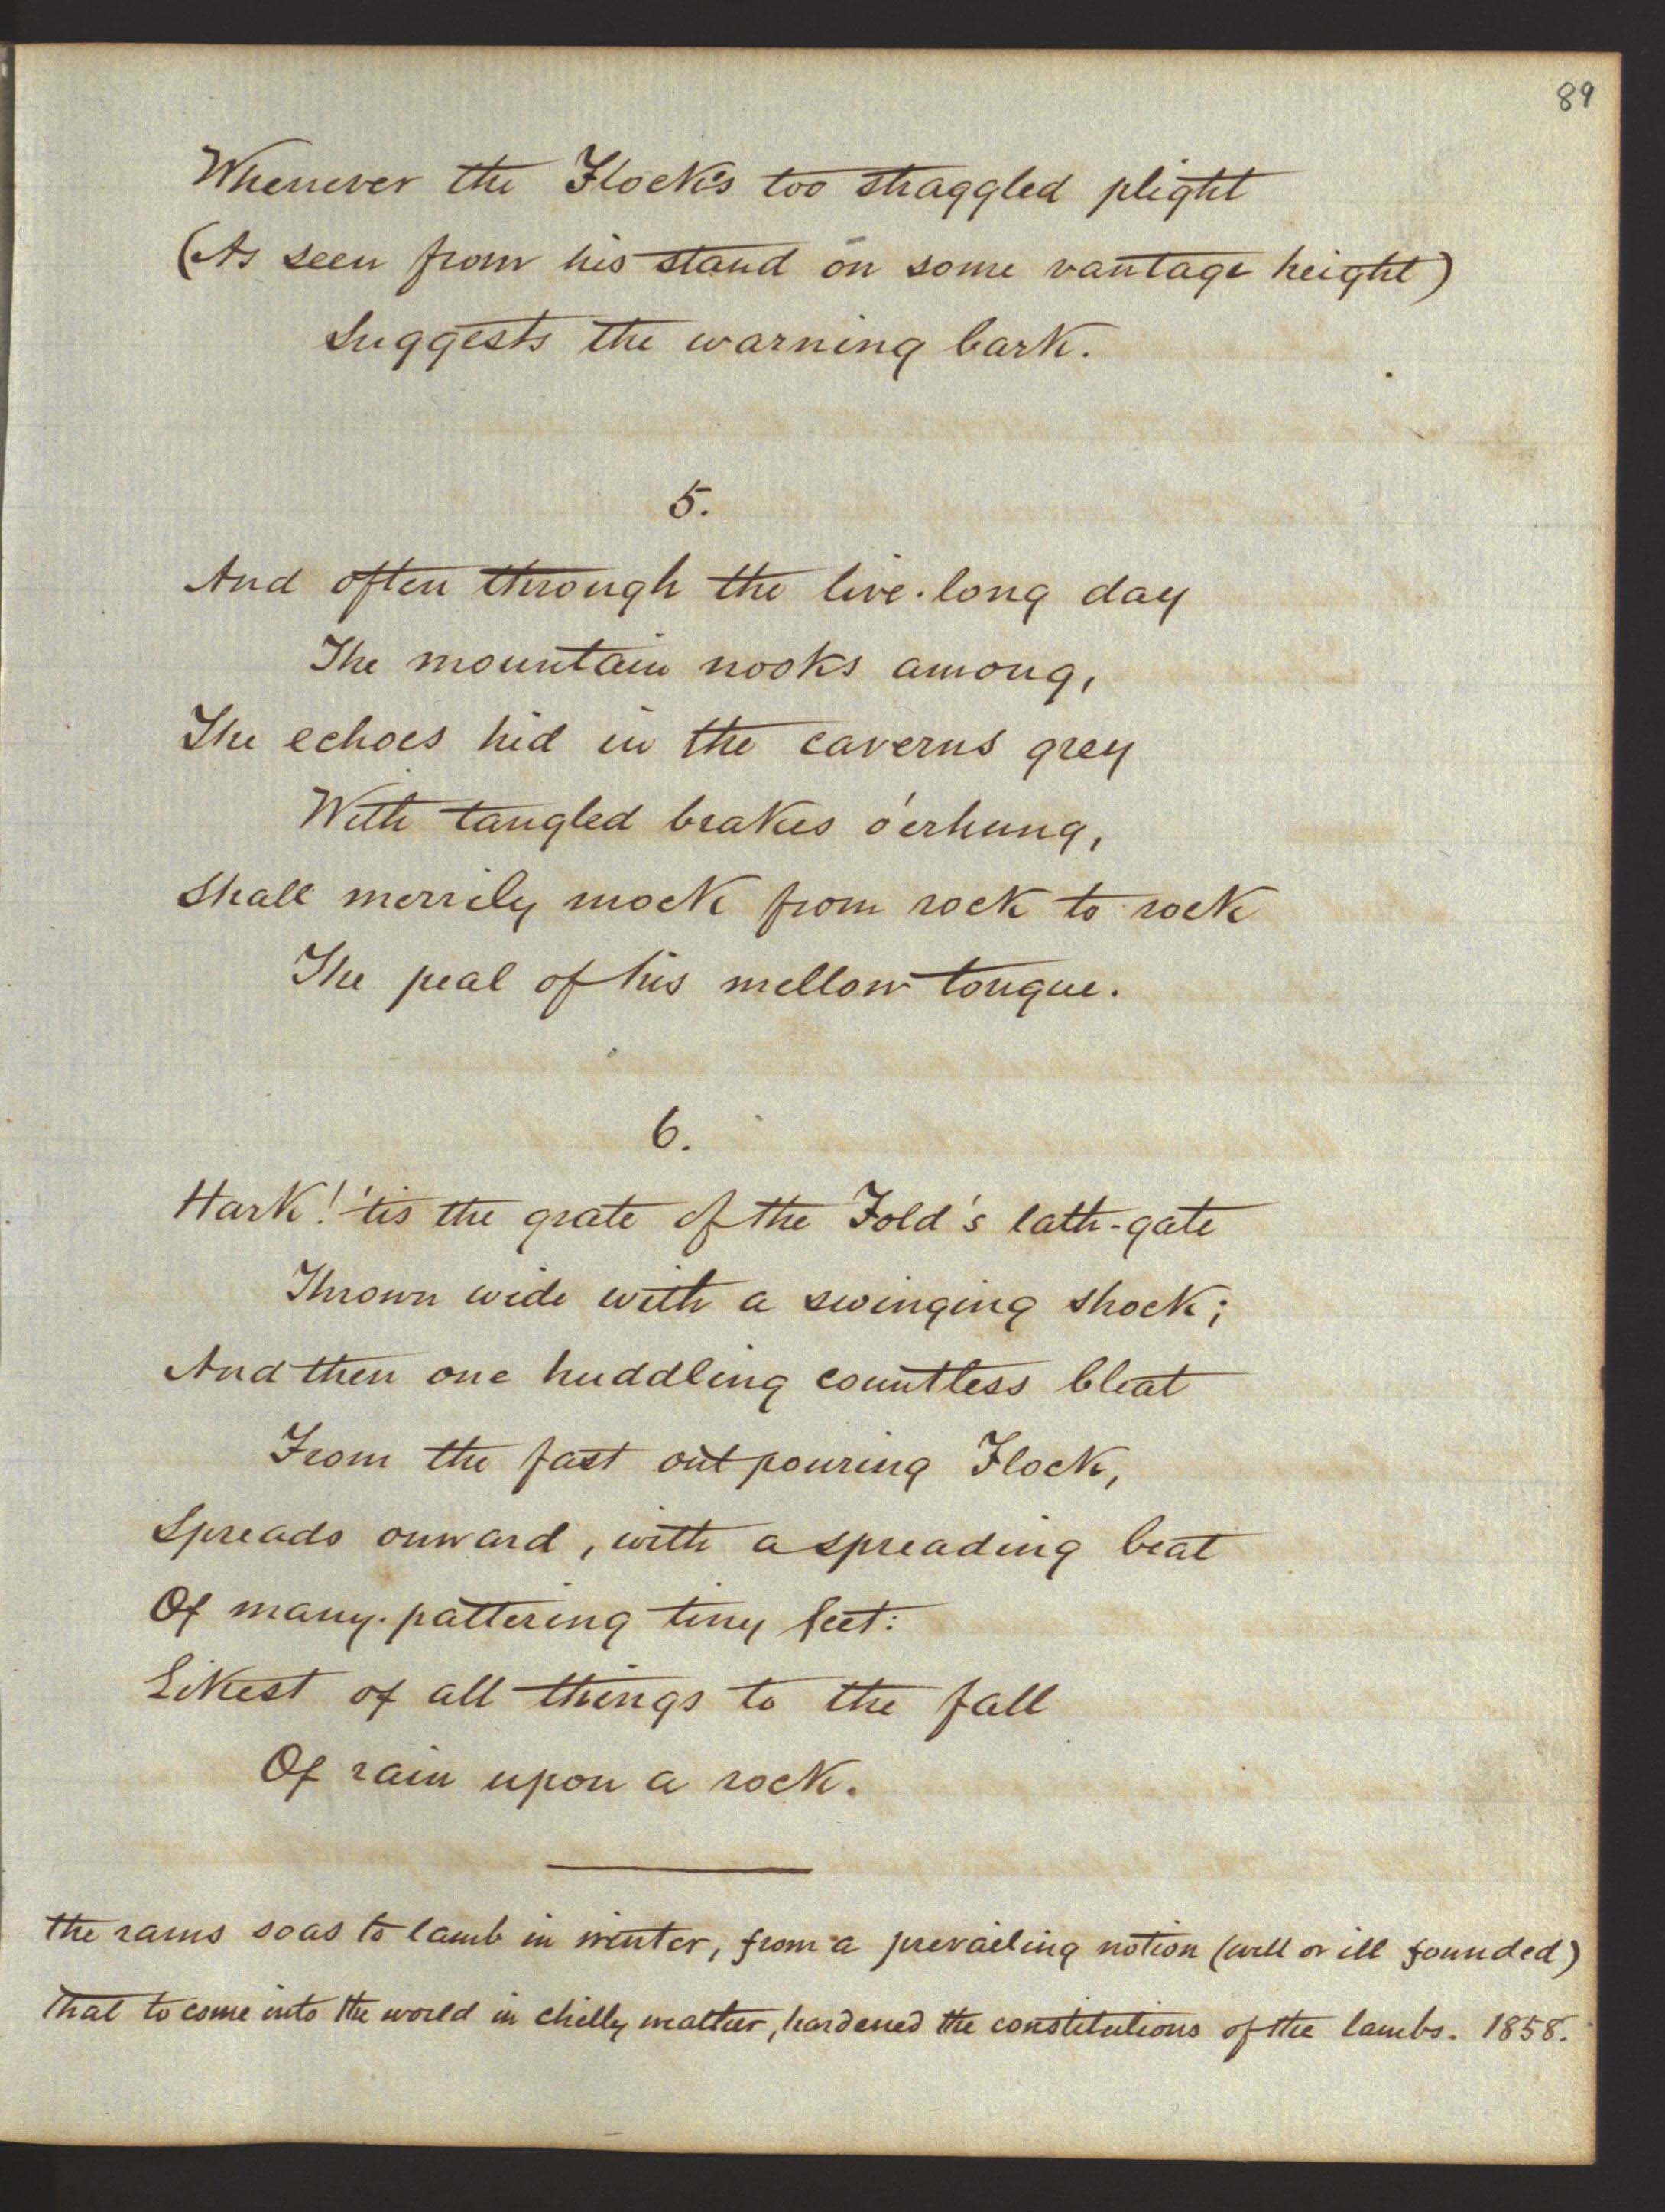 89
Whenever the Flock's too straggled plight
(As seen from his stand on some vantage height)
Suggests the warning bark.
5.
And often through the live-long day
The mountain nooks among,
The echoes hid in the caverns grey
With tangled brakes o'erhung,
Shall merrily mock from rock to rock
The peal of his mellow tongue.
6.
Hark! 'tis the grate of the Fold's lath-gate
Thrown wide with a swinging shock;
And then one huddling countless bleat
From the fast outpouring Flock,
Spreads onward, with a spreading beat
Of many-pattering tiny feet:
Likest of all things to the fall
Of rain upon a rock.
the rams so as to lamb in winter, from a prevailing notion (well or ill founded)
that to come into the world in chilly weather, hardened the constitutions of the lambs. 1858.